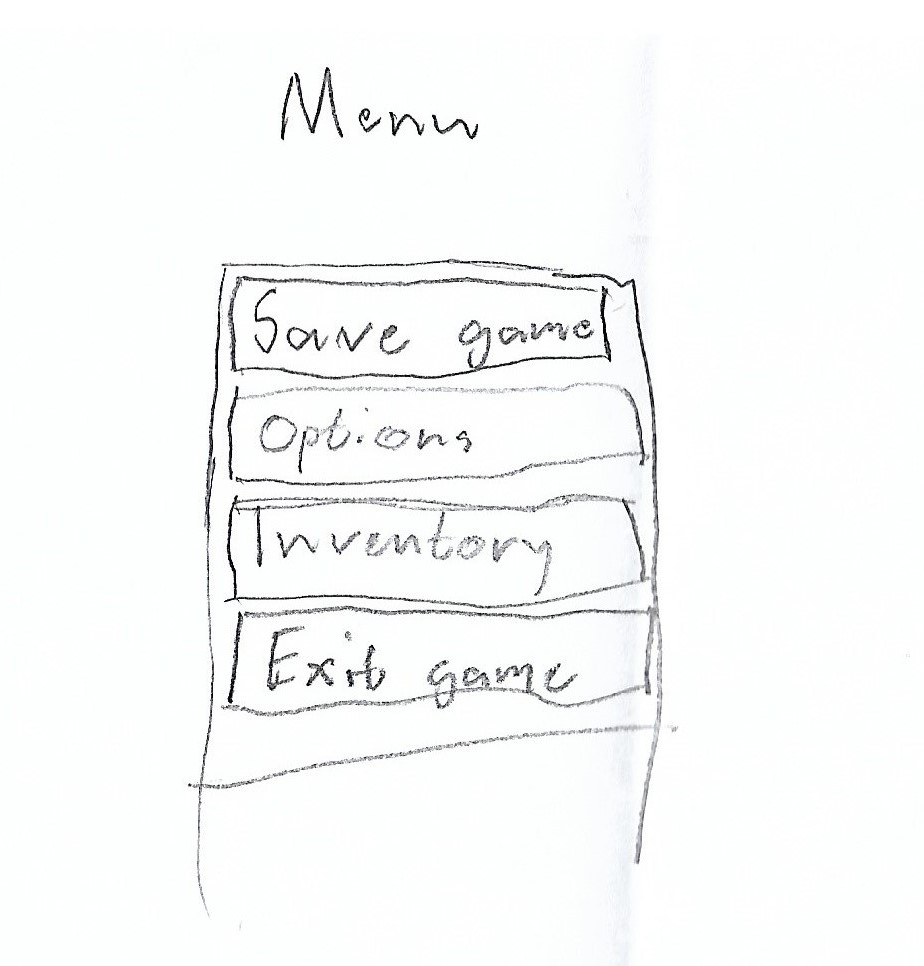 Menu
Save game
Options
Inventory
Exit game